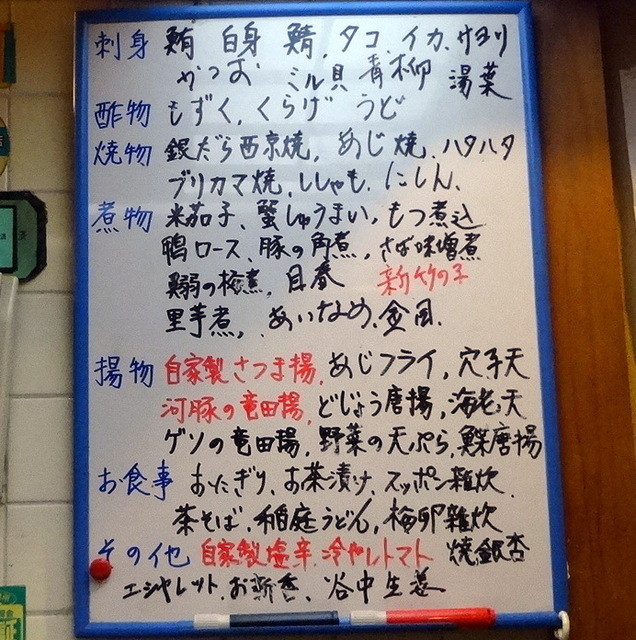 刺身 鮪 白身 鯖、タコ、イカ、サヨリ
かつお ミル貝 青柳 湯葉
酢物 もずく、くらげ うど
焼物 銀だら西京焼、あじ焼、ハタハタ
ブリカマ焼、ししゃも、にしん、
煮物 米茄子、蟹しゅうまい、もつ煮込
鴨ロース、豚の角煮、さば味噌煮
鰯の梅煮、目春 新竹の子
里芋煮、あいなめ、金目、
揚物 自家製さつま揚、あじフライ、穴子天
河豚の竜田揚、どじょう唐揚、海老天
ゲソの竜田揚、野菜の天ぷら、鰈唐揚
お食事 おにぎり、お茶漬け、スッポン雑炊、
茶そば、稲庭うどん、梅卵雑炊
その他 自家製塩辛、冷やしトマト 焼銀杏
エシャレット、お新香、谷中生姜